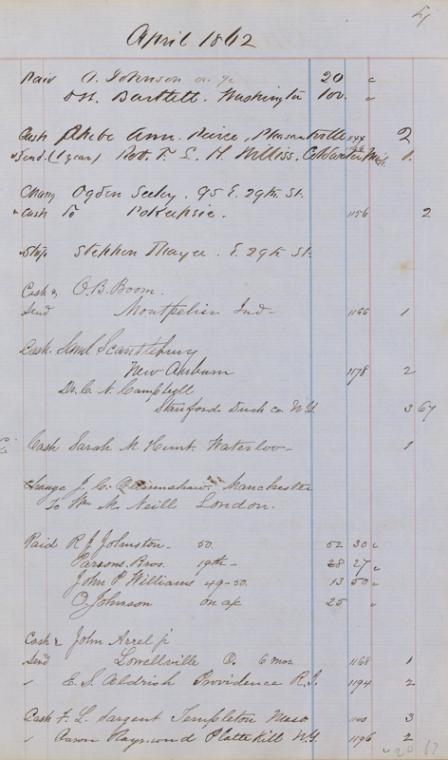 4
April 1862
Paid O. Johnson on % 20 "
D.W. Bartlett. Washington 100. "
Cash Phebe Ann. Peirce, Pleasantville 2
Send. (1 year) Rev. F. L. H. Williss. Coldwater Mich. 1.
Chang Ogden Seeley. 95 E. 29th St.
" Cash To Pokepsie. 1156 2
Stop Stephen Thayer. E. 29th St.
Cash & O. B. Boom.
Send Montpelier Ind - 1166 1
Cash. Saml Scantlebury
New Auburn 1178 2
Dr. C. N. Campbell
Stanford Dutch co. N.Y. 3 67
Cash Sarah M Hunt. Waterloo - 1
Change J. C. Manchester
To Wm M. Neill London.
Paid R J Johnston - 50. 52 30 c
Parsons. Bros. 19th - 28 27 c
John P Williams 49-50. 13 50 c
O. Johnson on a/c 25 "
Cash & John Arrel jr
Send Lowellville O. 6 mos 1168 1
" E. S. Aldrich Providence R.I. 1194 2
Cash F. L. Sargent Templeton Mass 3
" Aaron Raymond Plattekill N.Y. 1196 2